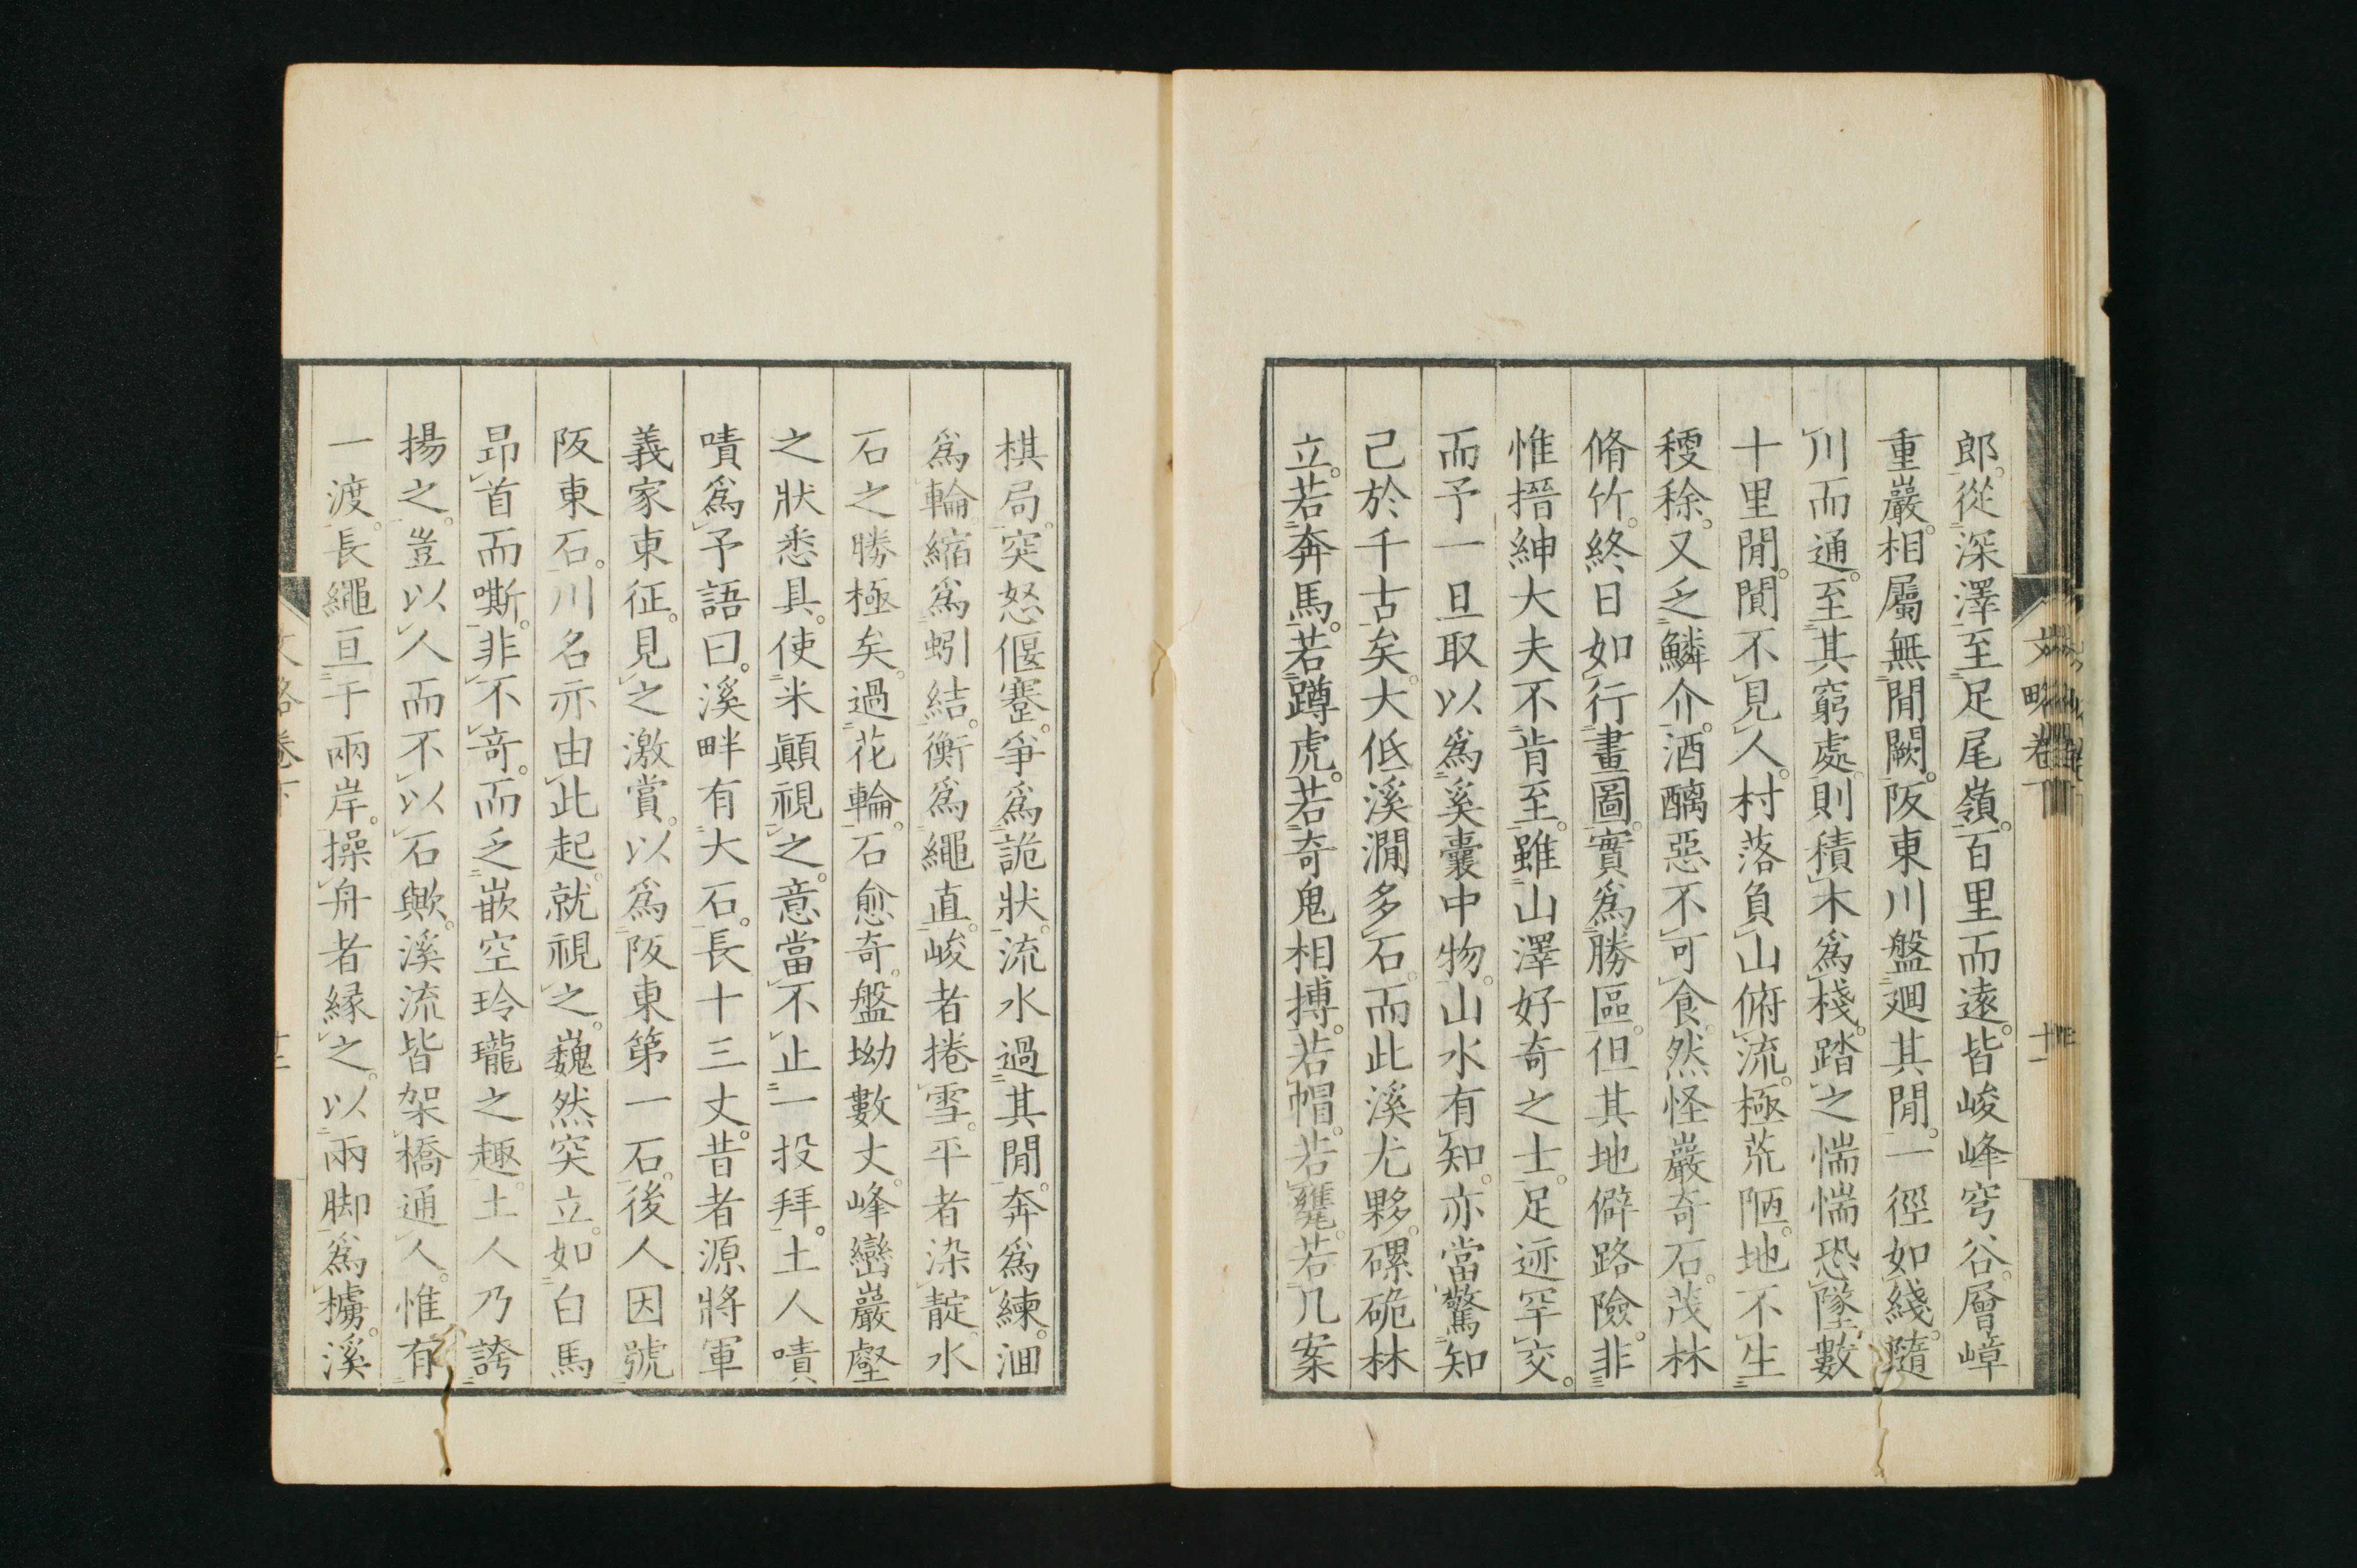 郎。從深澤至足尾嶺。百里而遠。皆峻峰穹谷。層嶂
重巖。相屬無間闕。阪東川盤廻其間。一徑如綫。隨
川而通。至其窮處。則積木爲棧。踏之惴惴恐墜。數
十里間。間不見人。村落負山俯流。極荒陋。地不生
稷稌。又乏鱗介。酒醨惡不可食。然怪巖奇石。茂林
脩竹。終日如行畫圖。實爲勝區。但其地僻路險。非
惟搢紳大夫不肯至。雖山澤好奇之士。足迹罕交。
而予一旦取以爲奚囊中物。山水有知。亦當驚知
己於千古矣。大低溪澗多石。而此溪尤夥。磥硊林
立。若奔馬。若蹲虎。若奇鬼相搏。若帽。若甕。若几案
文略卷下
十一
棋局。突怒偃蹇。爭爲詭狀。流水過其間。奔爲練。洄
爲輪。縮爲蚓結。衡爲繩直。峻者捲雪。平者染靛。水
石之勝極矣。過花輪。石愈奇。盤坳數丈。峰巒巖壑
之狀悉具。使米顚視之。意當不止一投拜。土人嘖
嘖爲予語曰。溪畔有大石。長十三丈。昔者源將軍
義家東征。見之激賞。以爲阪東第一石。後人因號
阪東石。川名亦由此起。就視之。巍然突立。如白馬
昂首而嘶。非不奇。而乏嵌空玲瓏之趣。土人乃誇
揚之。豈以人而不以石歟。溪流皆架橋通人。惟有
一渡。長繩亘于兩岸。操舟者縁之。以兩脚爲櫓。溪
文略卷下
十二